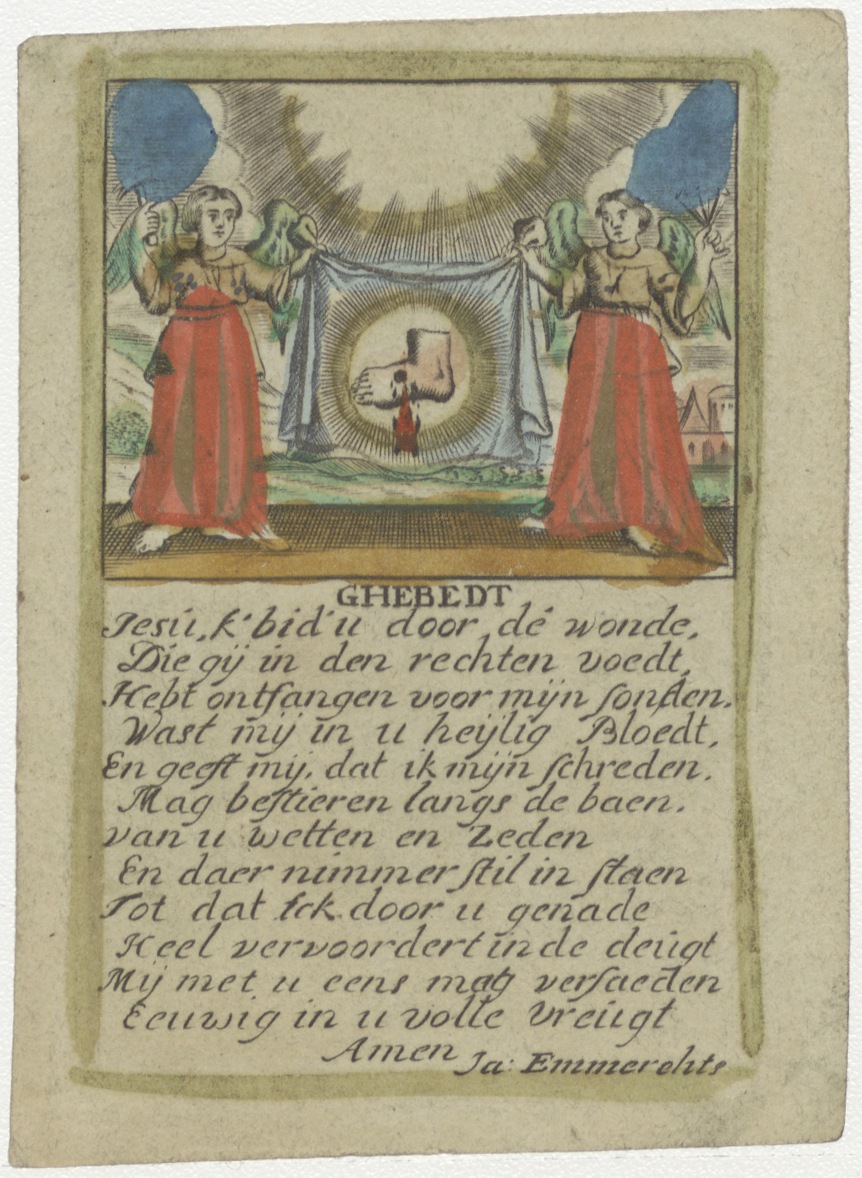 GHEBEDT
Jesú, k' bid' u door de wonde,
Die gij in den rechten voedt,
Hebt ontfangen voor mijn sonden.
Wast mij in u heijlig Bloedt,
En geeft mij, dat ik mijn schreden,
Mag bestieren langs de baen.
van u wetten en Zeden
En daer nimmer stil in staen
Tot dat Ick door u genade
Heel vervoordert in de deúgt
Mij met u eens mag versaeden
Eeuwig in u volle Vreúgt
Amen
Ja: Emmerehts